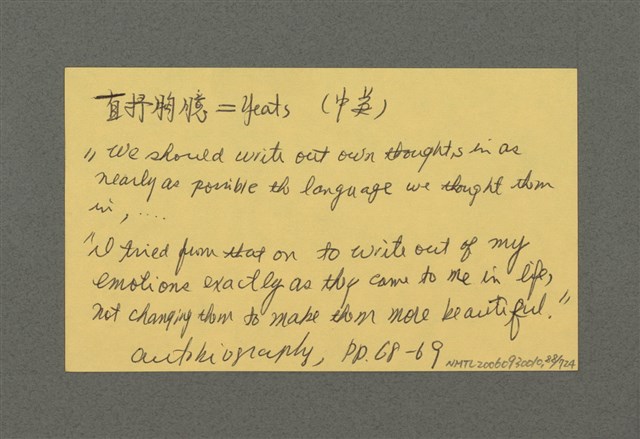 直抒胸臆 = Yeats （中英）
"We should write out own thoughts in as
nearly as possible the language we thought them
in, ....
"I tried from that on to write out of my
emotions exactly as they came to me in life,
not changing them to make them more beautiful."
autobiography, pp. 68-69
NMTL20060930010,88/724